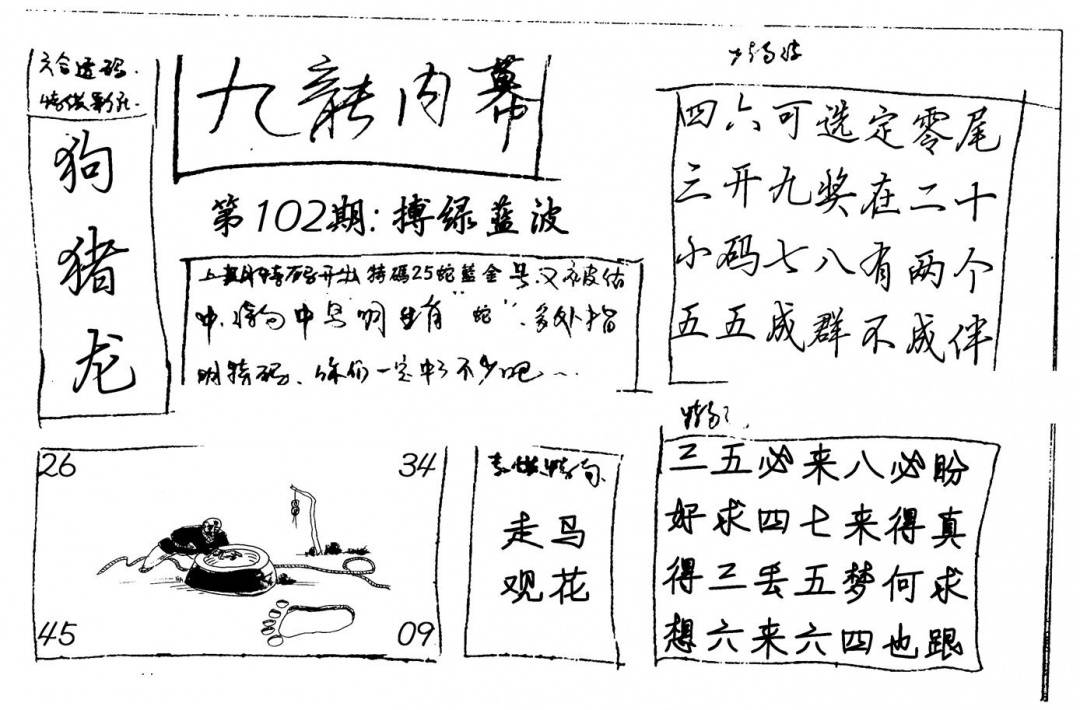 六合透码.
狗
猪
龙
九龍内幕
第102期:搏绿蓝波
上期特码开出特碼25蛇藍金号,又被估
中.特肖中号明生肖"蛇".多处指
明特码、你们一定中了不少吧~
四六可选定零尾
三开九奖在二十
小码七八有两个
五五成群不成伴
26
34
45
09
走马
观花
三五必来八必盼
好求四七来得真
得三丢五梦何求
想六来六四也跟